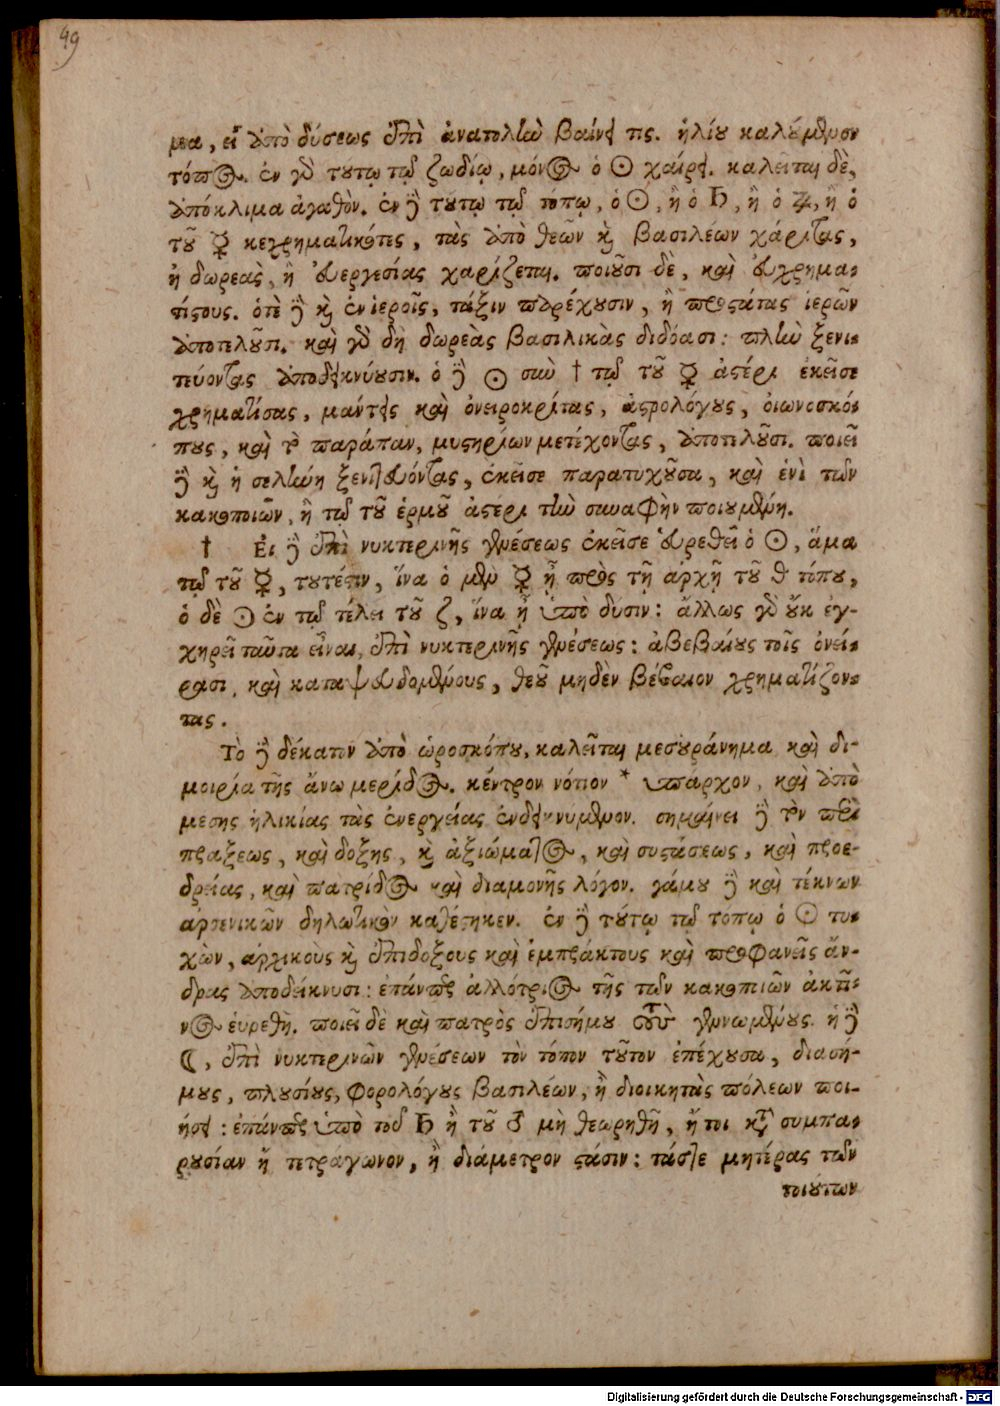 49
μεα, εἰ ἀπὸ δύσεως ἐπὶ ἀνατολὴν βαίνει τις. ἡλίου καλούμενον
τόπος. ἐν γὰρ τούτῳ τῷ ζωδίῳ, μόνος ὁ ☉ χαίρει. καλεῖται δὲ,
ἀπόκλιμα ἀγαθὸν. ἐν δὲ τούτῳ τῷ τόπῳ, ὁ ☉, ἢ ὁ ♄, ἢ ὁ ♃, ἢ ὁ
τοῦ ☿ κεχρηματικότες, τὰς ἀπὸ θεῶν καὶ βασιλέων χάριτας,
ἢ δωρεὰς, ἢ εὐεργεσίας χαρίζεται. ποιοῦσι δὲ, καὶ εὐχρημα-
τίστους. ὁτὲ δὲ καὶ ἐν ἱεροῖς, τάξιν παρέχουσιν, ἢ προστάτας ἱερῶν
ἀποτελοῦσι. καὶ γὰρ δὴ δωρεὰς βασιλικὰς διδόασι: πλὴν ξενι-
τεύοντας ἀποδεικνύουσιν. ὁ δὲ ☉ σὺν † τῷ τοῦ ☿ ἀστέρι ἐκεῖσε
χρηματίσας, μάντεις καὶ ὀνειροκρίτας, ἀστρολόγους, οἰωνοσκό-
πους, καὶ τὸ παράπαν, μυστηρίων μετέχοντας, ἀποτελοῦσι. ποιεῖ
δὲ καὶ ἡ σελήνη ξενιτεύοντας, ἐκεῖσε παρατυχοῦσα, καὶ ἑνὶ τῶν
κακοποιῶν, ἢ τῷ τοῦ ἑρμοῦ ἀστέρι τὴν συναφὴν ποιουμένη.
† Εἰ δὲ ἐπὶ νυκτερινῆς γενέσεως ἐκεῖσε εὑρεθεῖ ὁ ☉, ἅμα
τῷ τοῦ ☿, τουτέστιν, ἵνα ὁ μὲν ☿ ᾖ πρὸς τῇ ἀρχῇ τοῦ θ τόπου,
ὁ δὲ ☉ ἐν τῷ τέλει τοῦ ζ, ἵνα ᾖ ὑπὸ δύσιν: ἄλλως γὰρ οὔκ ἐγ-
χηρεῖ ταῦτα εἶναι, ἐπὶ νυκτερινῆς γενέσεως: ἀβεβαίους τοῖς ὀνεί-
ρασι, καὶ καταψευδομένους, θεοῦ μηδὲν βέβαιον χρηματίζον-
τας.
Τὸ δὲ δέκατον ἀπὸ ὡροσκόπου, καλεῖται μεσουράνημα καὶ δι-
μοιρία τῆς ἄνω μερίδος. κέντρον νότιον * ὑπάρχον, καὶ ἀπὸ
μεσης ἡλικίας τὰς ἐνεργείας ἐνδεικνύμενον. σημαίνει δὲ τὸν περὶ
πράξεως, καὶ δοξης, καὶ ἀξιώματος, καὶ συστάσεως, καὶ προε-
δρείας, καὶ πατρίδος καὶ διαμονῆς λόγον. γάμου δὲ καὶ τέκνων
ἀρσενικῶν δηλωτικὸν καθέστηκεν. ἐν δὲ τούτῳ τῷ τοπῳ ὁ ☉ τυ-
χὼν, ἀρχικοὺς καὶ ἐπιδοξους καὶ ἐμπράκτους καὶ προφανεῖς ἄν-
δρας ἀποδείκνυσι: ἐπάντως ἀλλότριος τῆς τῶν κακοποιῶν ἀκτῖ-
νος εὑρεθῇ. ποιεῖ δὲ καὶ πατρὸς ἐπισήμου γεννωμένους. ἡ δὲ
☾, ἐπὶ νυκτερινῶν γενέσεων τὸν τόπον τοῦτον ἐπέχουσα, διασή-
μους, πλουσίους, φορολόγους βασιλέων, ἢ διοικητὰς πόλεων ποι-
ήσει: ἐπάντως ὑπὸ τοῦ ♄ ἢ τοῦ ♂ μὴ θεωρηθῇ, ἤτοι κατὰ συμπα-
ρουσίαν ἢ τετράγωνον, ἢ διάμετρον στάσιν: τάς τε μητέρας τῶν
τοιούτων
Digitalisierung gefördert durch die Deutsche Forschungsgemeinschaft - DFG